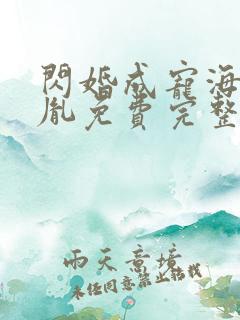 閃婚成寵海
胤免費完整
雨天意境
未经同意禁止转载